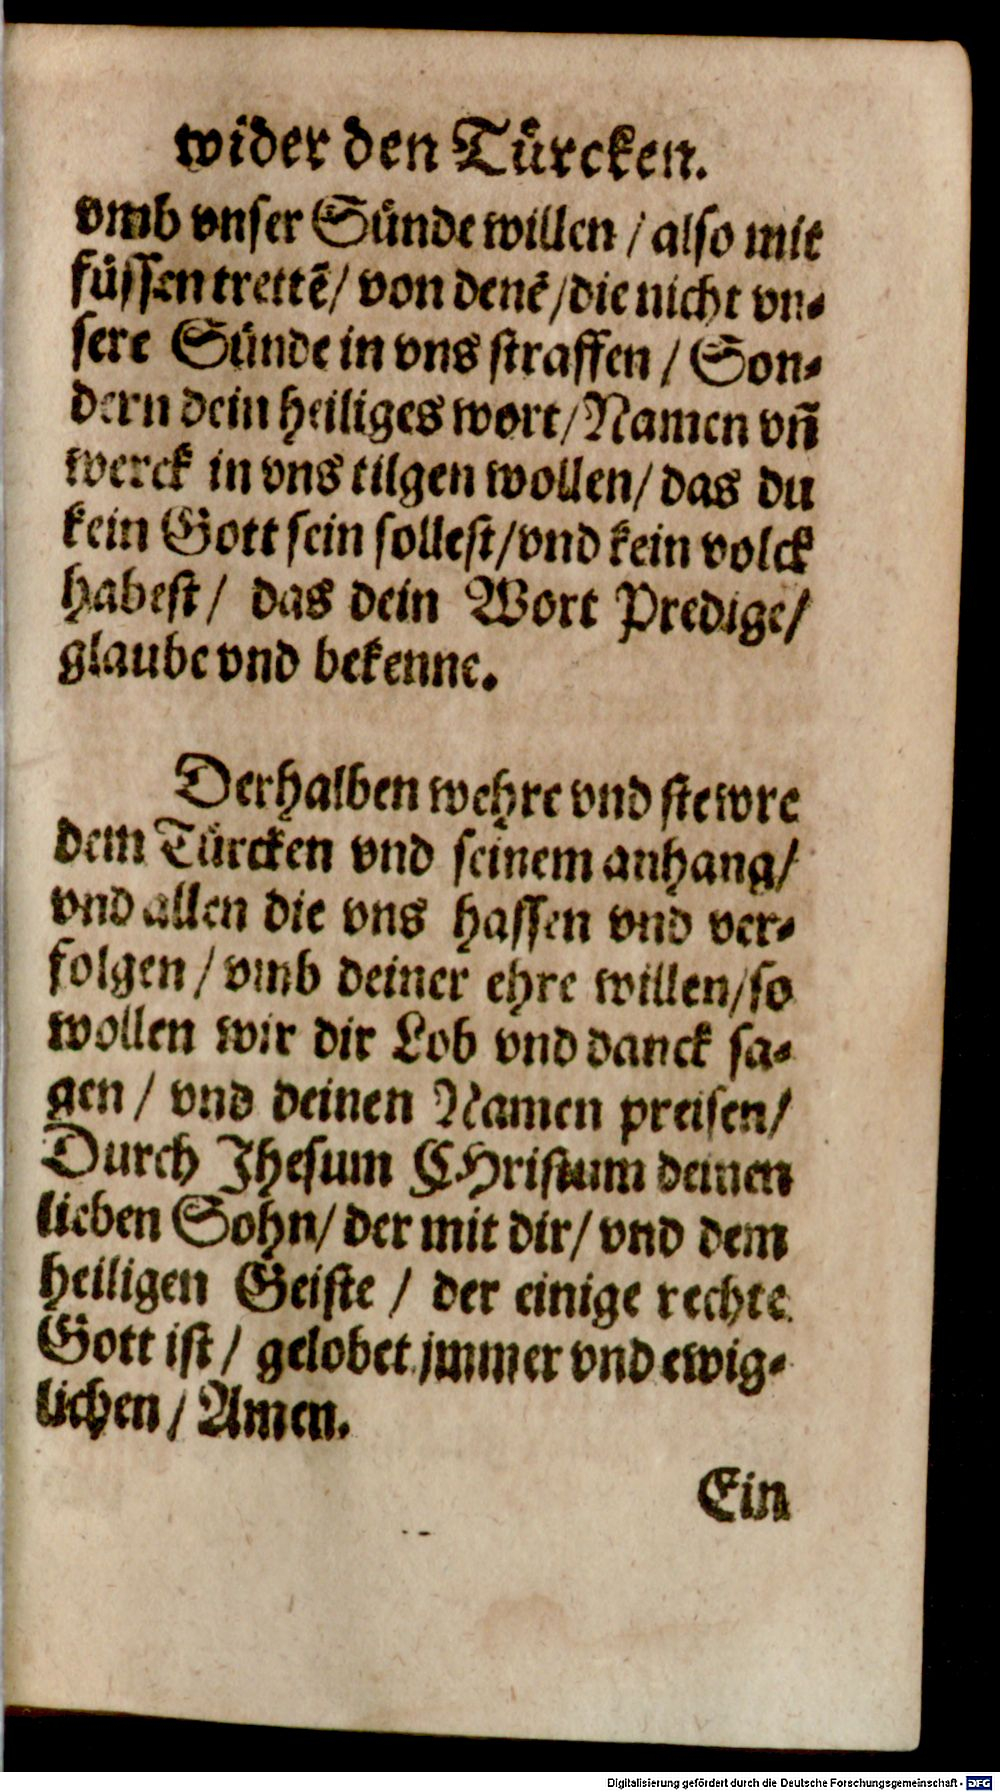 wider den Türcken.
vmb vnser Sünde willen / also mit
füssen trettẽ / von denẽ / die nicht vn⸗
sere Sünde in vns straffen / Son⸗
dern dein heiliges wort / Namen vñ
werck in vns tilgen wollen / das du
kein Gott sein sollest / vnd kein volck
habest / das dein Wort Predige /
glaube vnd bekenne.
Derhalben wehre vnd stewre
dem Türcken vnd seinem anhang /
vnd allen die vns hassen vnd ver⸗
folgen / vmb deiner ehre willen / so
wollen wir dir Lob vnd danck sa⸗
gen / vnd deinen Namen preisen /
Durch Jhesum CHristum deinen
lieben Sohn / der mit dir / vnd dem
heiligen Geiste / der einige rechte
Gott ist / gelobet jmmer vnd ewig⸗
lichen / Amen.
Ein
Digitalisierung gefördert durch die Deutsche Forschungsgemeinschaft - DFG